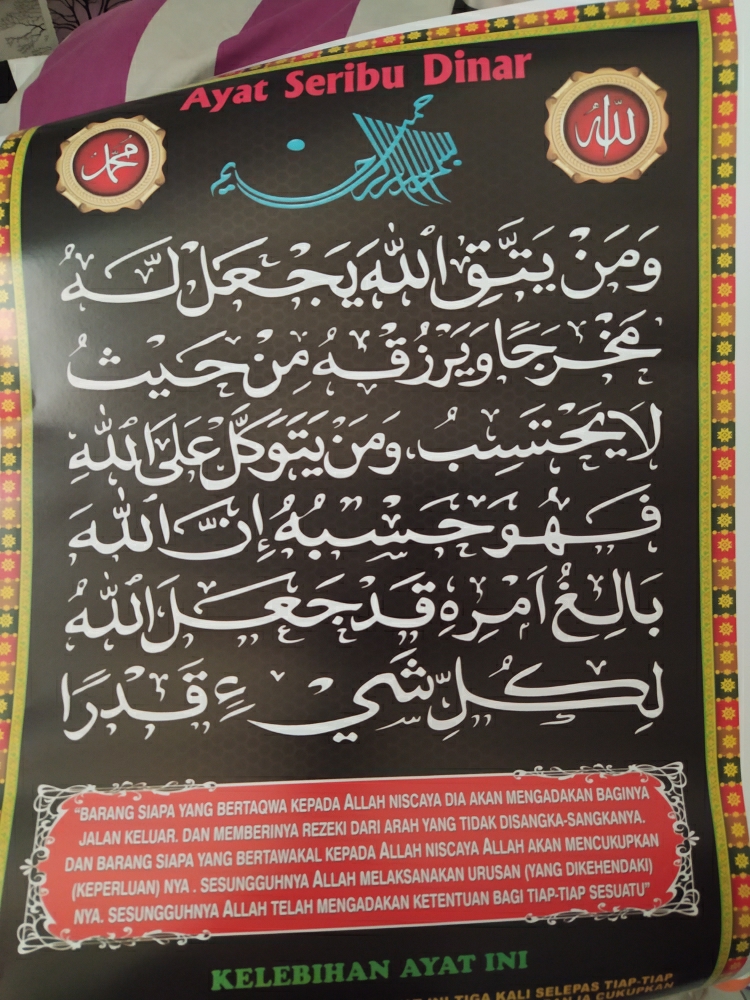 Ayat Seribu Dinar
محمد
الله
بسم الله الرحمن الرحيم
وَمَنْ يَتَّقِ ٱللَّهَ يَجْعَلْ لَّـهُ
مَخْرَجًا وَيَرْزُقْـهُ مِنْ حَيْثُ
لَا يَحْتَسِبُ، وَمَنْ يَتَوَكَّلْ عَلَى ٱللَّهِ
فَـهُـوَ حَسْبُهُ إِنَّ ٱللَّهَ
بَالِغُ اَمْرِهِ قَدْ جَعَـلَ ٱللَّهُ
لِكُلِّ شَيْءٍ قَدْرًا
“BARANG SIAPA YANG BERTAQWA KEPADA ALLAH NISCAYA DIA AKAN MENGADAKAN BAGINYA
JALAN KELUAR. DAN MEMBERINYA REZEKI DARI ARAH YANG TIDAK DISANGKA-SANGKANYA.
DAN BARANG SIAPA YANG BERTAWAKAL KEPADA ALLAH NISCAYA ALLAH AKAN MENCUKUPKAN
(KEPERLUAN) NYA . SESUNGGUHNYA ALLAH MELAKSANAKAN URUSAN (YANG DIKEHENDAKI)
NYA. SESUNGGUHNYA ALLAH TELAH MENGADAKAN KETENTUAN BAGI TIAP-TIAP SESUATU”
KELEBIHAN AYAT INI
INI TIGA KALI SELEPAS TIAP-TIAP
CUKUPKAN